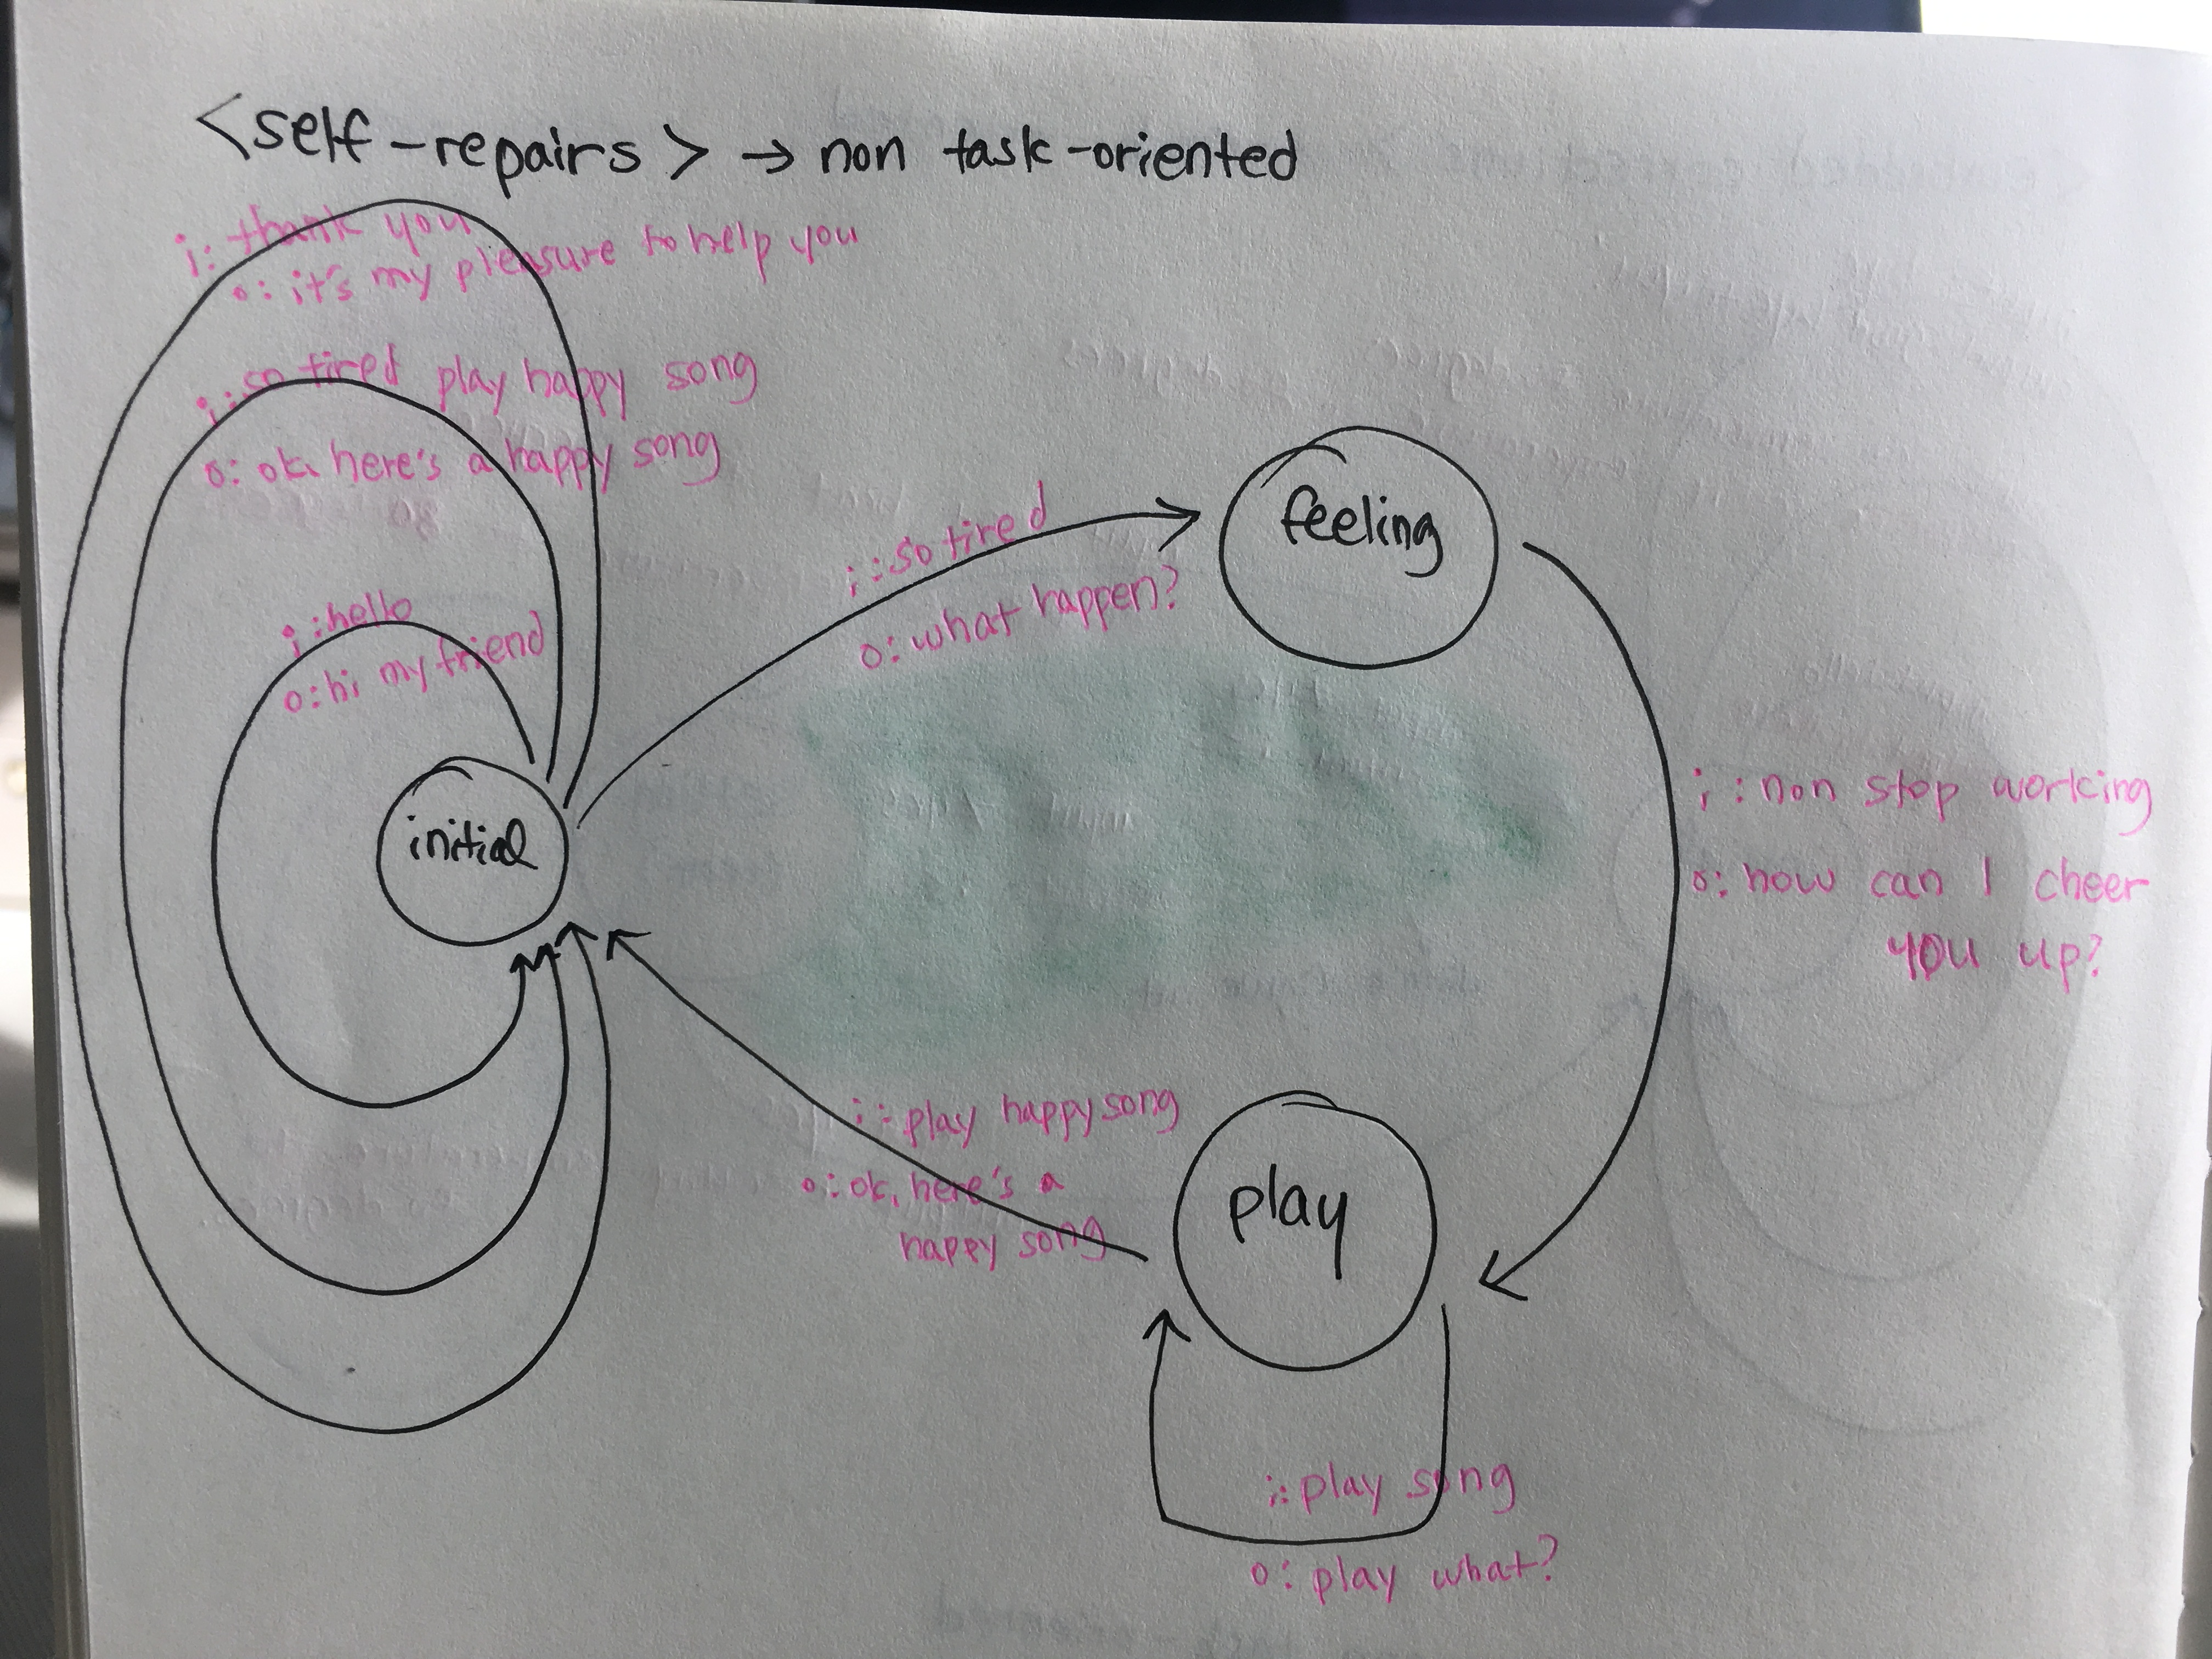 <self-repairs> → non task-oriented
i: thank you
o: it's my pleasure to help you
i: so tired play happy song
o: ok here's a happy song
i: hello
o: hi my friend
initial
i: so tired
o: what happen?
feeling
i: non stop working
o: how can I cheer
you up?
i: play happy song
o: ok, here's a
happy song
play
i: play song
o: play what?